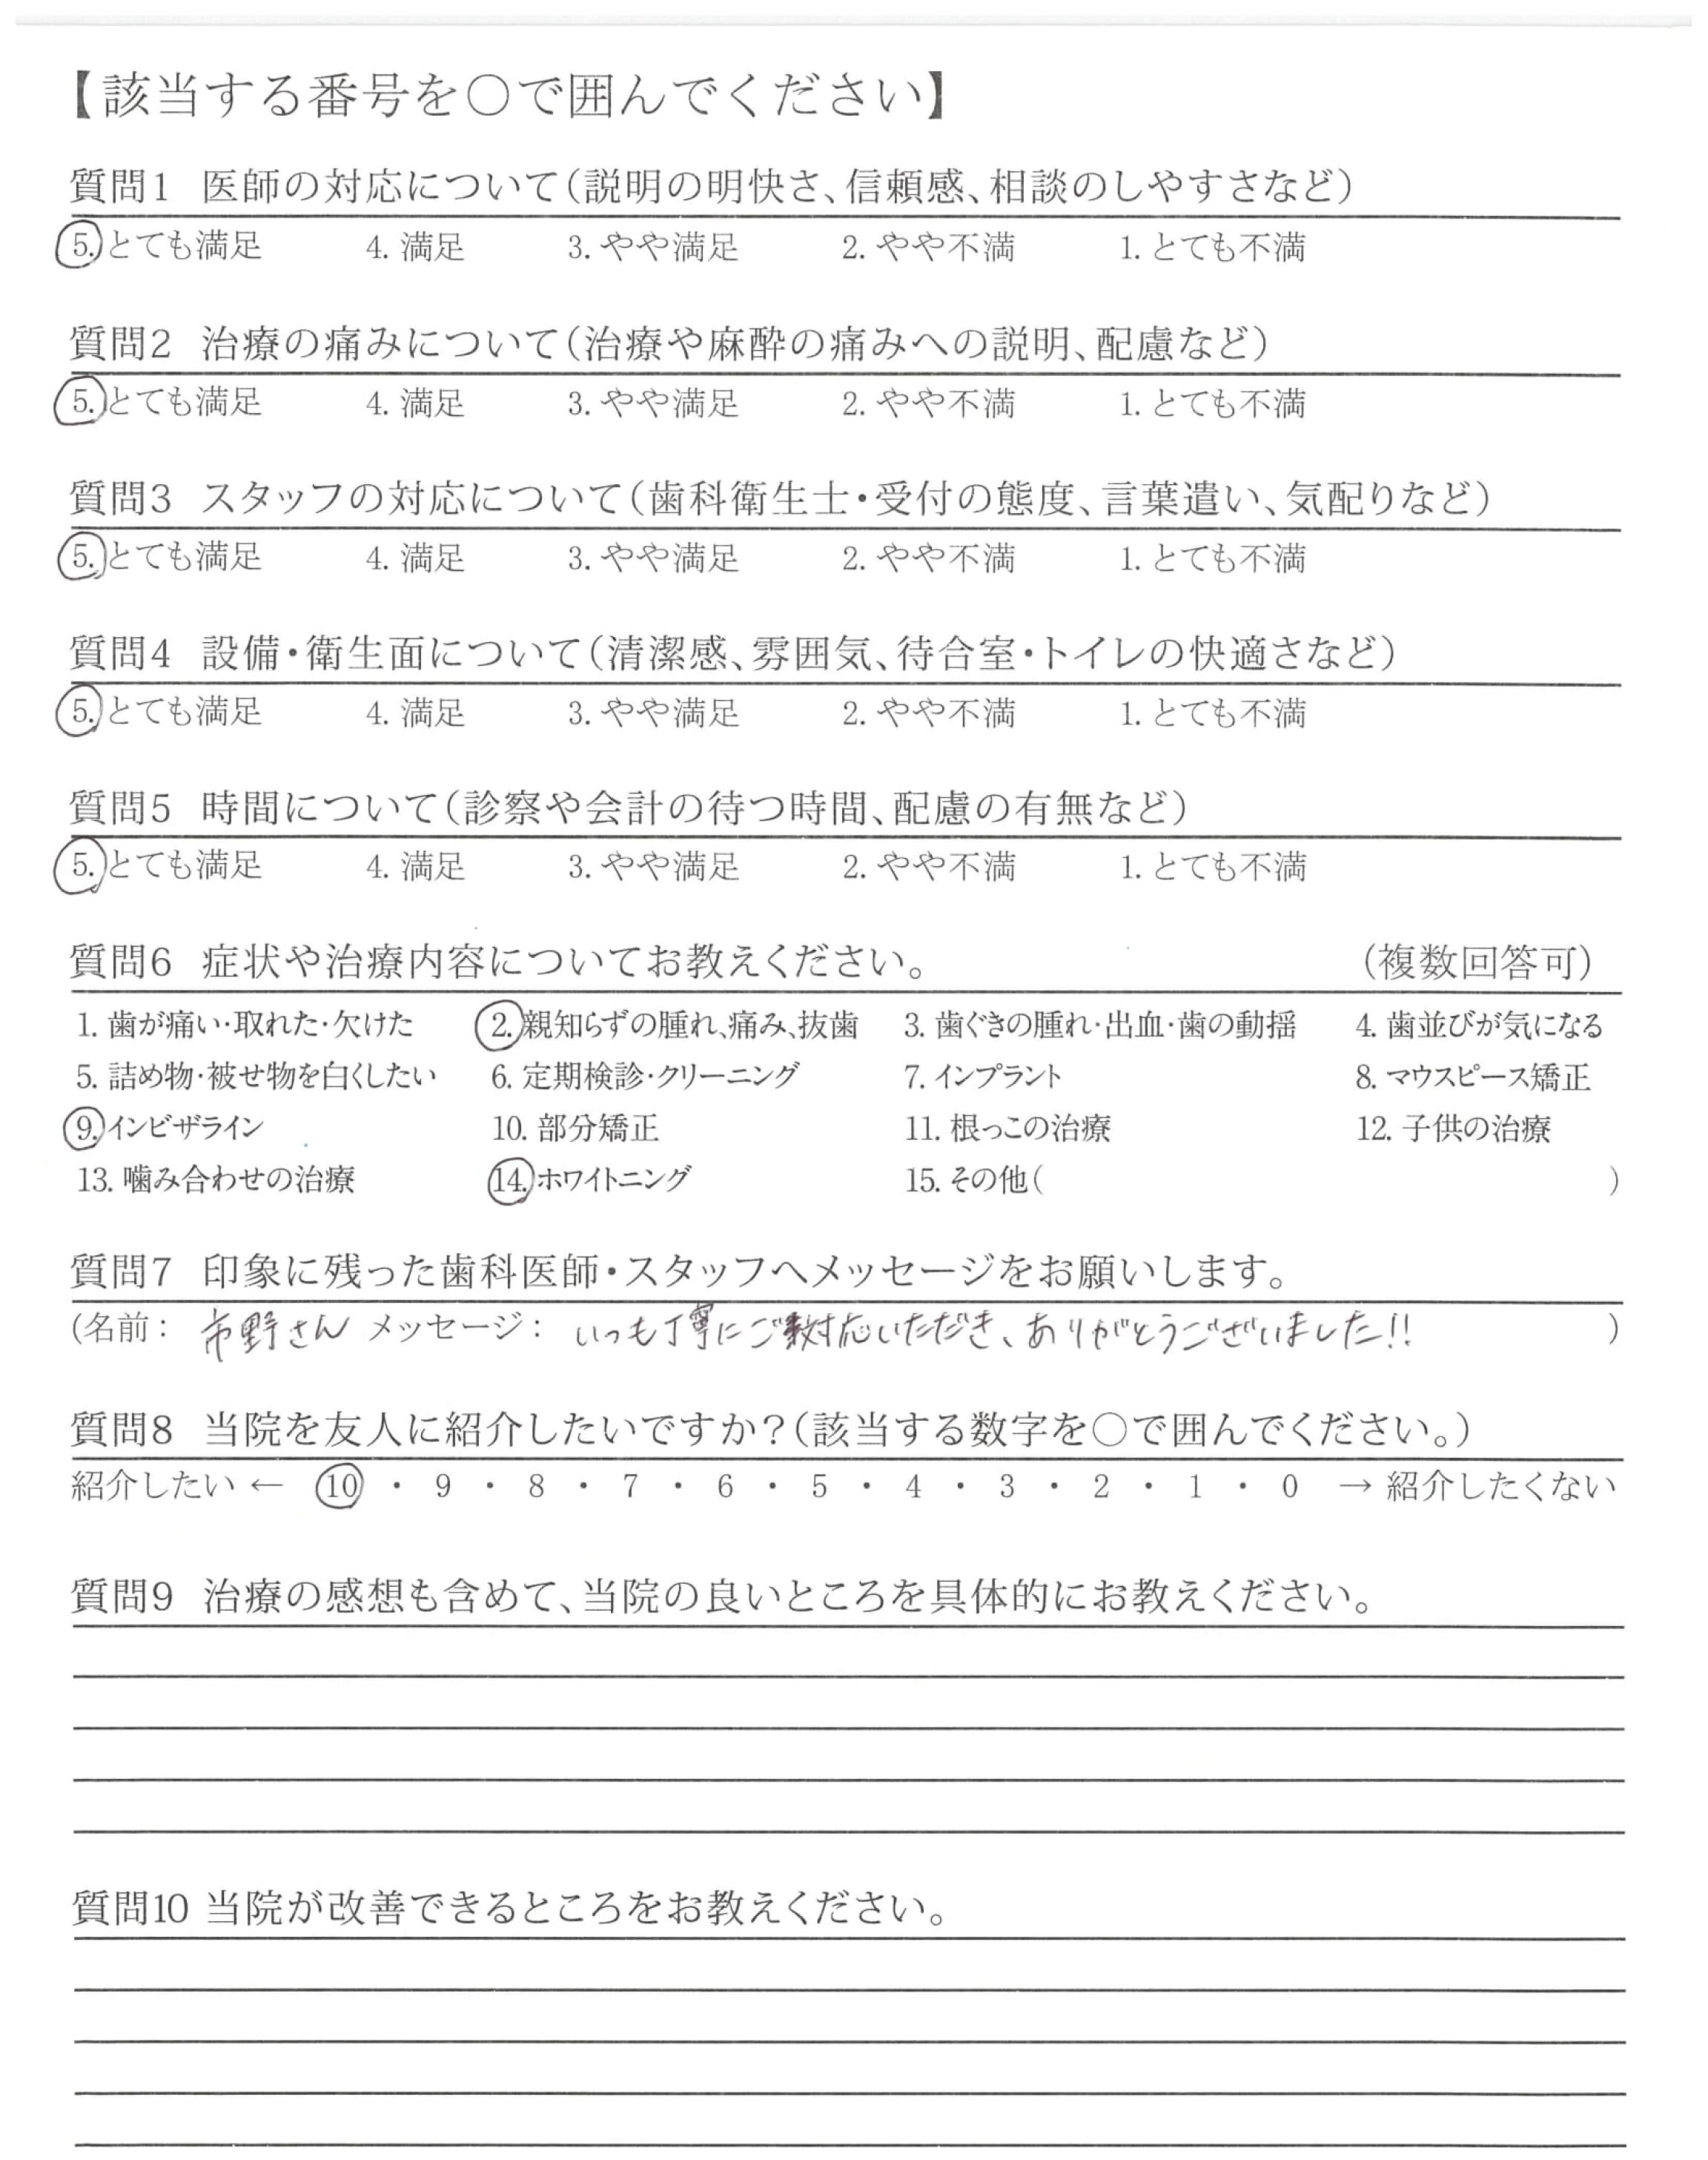 【該当する番号を〇で囲んでください】
質問1 医師の対応について（説明の明快さ、信頼感、相談のしやすさなど）
5. とても満足 4. 満足 3. やや満足 2. やや不満 1. とても不満
質問2 治療の痛みについて（治療や麻酔の痛みへの説明、配慮など）
5. とても満足 4. 満足 3. やや満足 2. やや不満 1. とても不満
質問3 スタッフの対応について（歯科衛生士・受付の態度、言葉遣い、気配りなど）
5. とても満足 4. 満足 3. やや満足 2. やや不満 1. とても不満
質問4 設備・衛生面について（清潔感、雰囲気、待合室・トイレの快適さなど）
5. とても満足 4. 満足 3. やや満足 2. やや不満 1. とても不満
質問5 時間について（診察や会計の待つ時間、配慮の有無など）
5. とても満足 4. 満足 3. やや満足 2. やや不満 1. とても不満
質問6 症状や治療内容についてお教えください。 （複数回答可）
1. 歯が痛い・取れた・欠けた 2. 親知らずの腫れ、痛み、抜歯 3. 歯ぐきの腫れ・出血・歯の動揺 4. 歯並びが気になる
5. 詰め物・被せ物を白くしたい 6. 定期検診・クリーニング 7. インプラント 8. マウスピース矯正
9. インビザライン 10. 部分矯正 11. 根っこの治療 12. 子供の治療
13. 噛み合わせの治療 14. ホワイトニング 15. その他（ ）
質問7 印象に残った歯科医師・スタッフへメッセージをお願いします。
（名前： 市野さん メッセージ： いつも丁寧にご対応いただき、ありがとうございました!! ）
質問8 当院を友人に紹介したいですか？（該当する数字を〇で囲んでください。）
紹介したい ← 10 ・ 9 ・ 8 ・ 7 ・ 6 ・ 5 ・ 4 ・ 3 ・ 2 ・ 1 ・ 0 → 紹介したくない
質問9 治療の感想も含めて、当院の良いところを具体的にお教えください。
質問10 当院が改善できるところをお教えください。